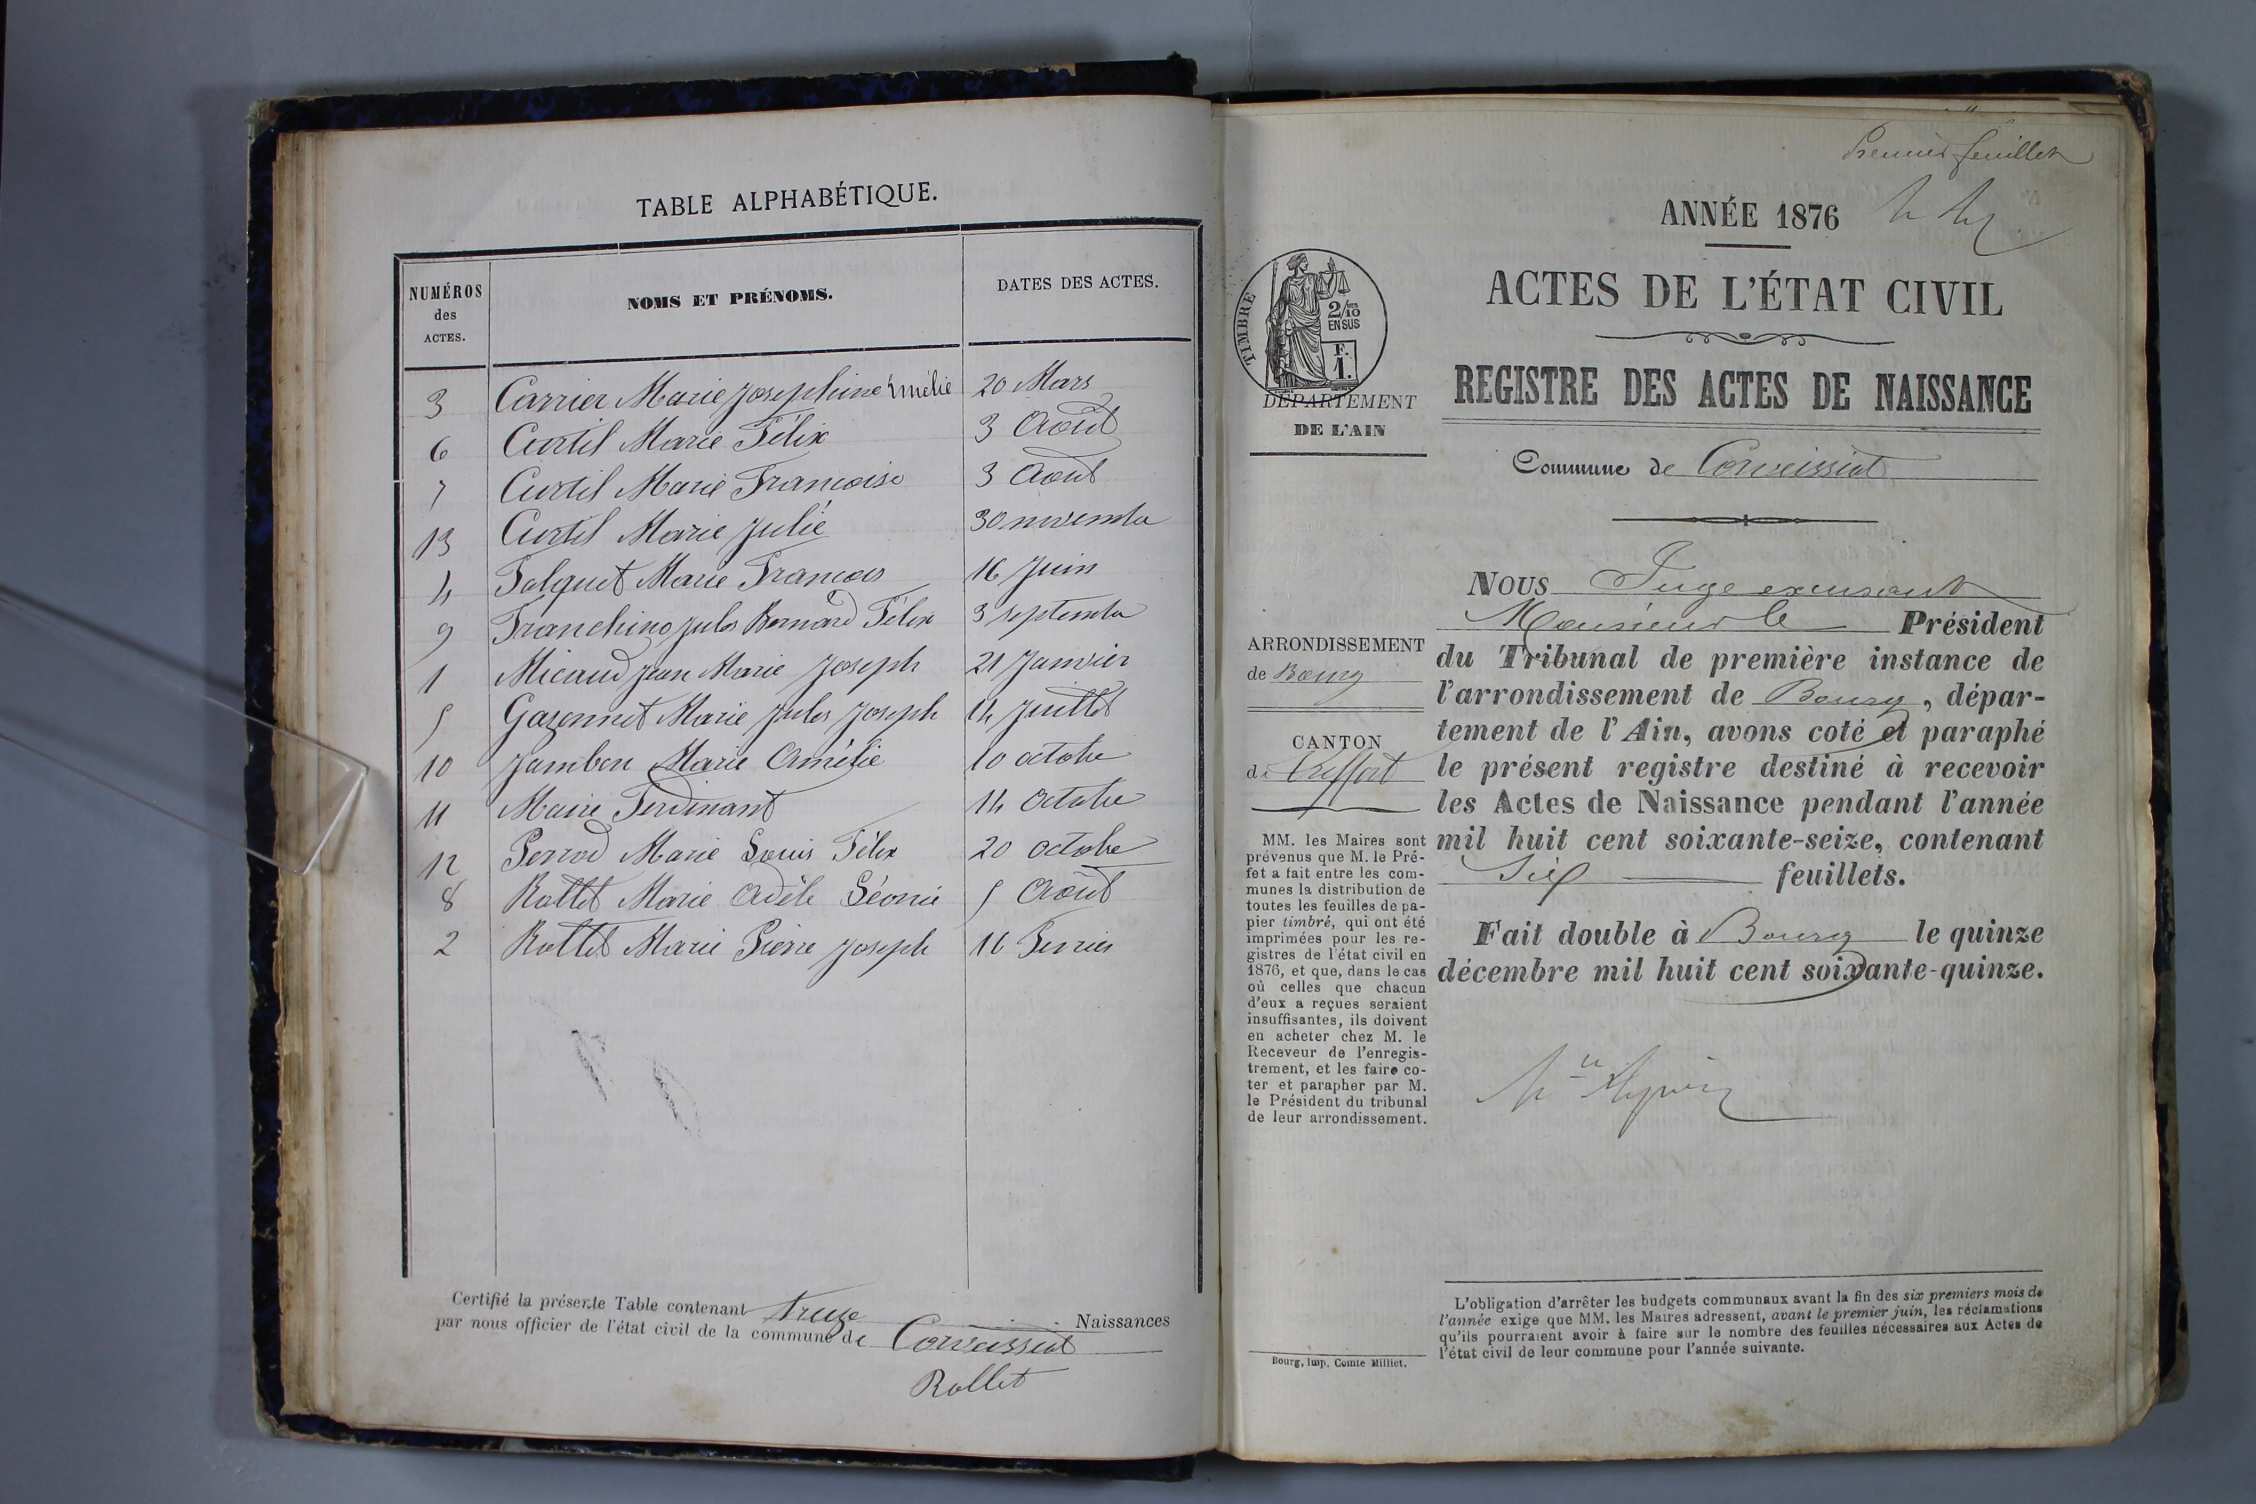 TABLE ALPHABÉTIQUE.
NUMÉROS
des
ACTES.
NOMS ET PRÉNOMS.
DATES DES ACTES.
3 Carrier Marie Joséphine Amélie 20 Mars
6 Curtil Marie Félix 3 Août
7 Curtil Marie Françoise 3 Août
13 Curtil Marie Julie 30 novembre
4 Falquet Marie François 16 Juin
9 Franchino Jules Bernard Félix 3 septembre
1 Micaud Jean Marie Joseph 21 Janvier
5 Gazonnet Marie Jules Joseph 14 Juillet
10 Jambon Marie Amélie 10 octobre
11 Maire Ferdinant 14 Octobre
12 Perrod Marie Louis Félix 20 octobre
8 Rollet Marie Adèle Léonie 5 Août
2 Rollet Marie Pierre Joseph 16 Février
Certifié la présente Table contenant treize Naissances
par nous officier de l'état civil de la commune de Corveissiat
Rollet
Premier feuillet
ANNÉE 1876
ACTES DE L'ÉTAT CIVIL
REGISTRE DES ACTES DE NAISSANCE
Commune de Corveissiat
TIMBRE
2/10
EN SUS
F.
1.
DÉPARTEMENT
DE L'AIN
ARRONDISSEMENT
de Bourg
CANTON
de Treffort
MM. les Maires sont
prévenus que M. le Pré-
fet a fait entre les com-
munes la distribution de
toutes les feuilles de pa-
pier timbré, qui ont été
imprimées pour les re-
gistres de l'état civil en
1876, et que, dans le cas
où celles que chacun
d'eux a reçues seraient
insuffisantes, ils doivent
en acheter chez M. le
Receveur de l'enregis-
trement, et les faire co-
ter et parapher par M.
le Président du tribunal
de leur arrondissement.
Bourg, Imp. Comte Milliet.
NOUS Juge excusant
Monsieur le Président
du Tribunal de première instance de
l'arrondissement de Bourg, dépar-
tement de l'Ain, avons coté et paraphé
le présent registre destiné à recevoir
les Actes de Naissance pendant l'année
mil huit cent soixante-seize, contenant
Six feuillets.
Fait double à Bourg le quinze
décembre mil huit cent soixante-quinze.
L'obligation d'arrêter les budgets communaux avant la fin des six premiers mois de
l'année exige que MM. les Maires adressent, avant le premier juin, les réclamations
qu'ils pourraient avoir à faire sur le nombre des feuilles nécessaires aux Actes de
l'état civil de leur commune pour l'année suivante.